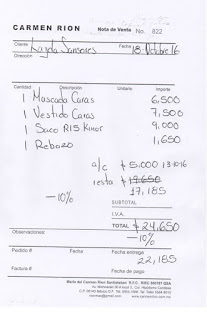 CARMEN RION Nota de Venta No. 822
Cliente Kayda Sansores Fecha 18-Octubre 16
Dirección
Cantidad Descripción Unitario Importe
1 Mascada Caras 6,500
1 Vestido Caras 7,500
1 Saco R15 Kimor 9,000
1 Rebozo 1,650
a/c $5,000 131016
resta $19,650
-10% 17,185
SUBTOTAL
I.V.A.
TOTAL $24,650
Observaciones: -10%
Pedido # Fecha entrega
22,185
Factura # Fecha de pago